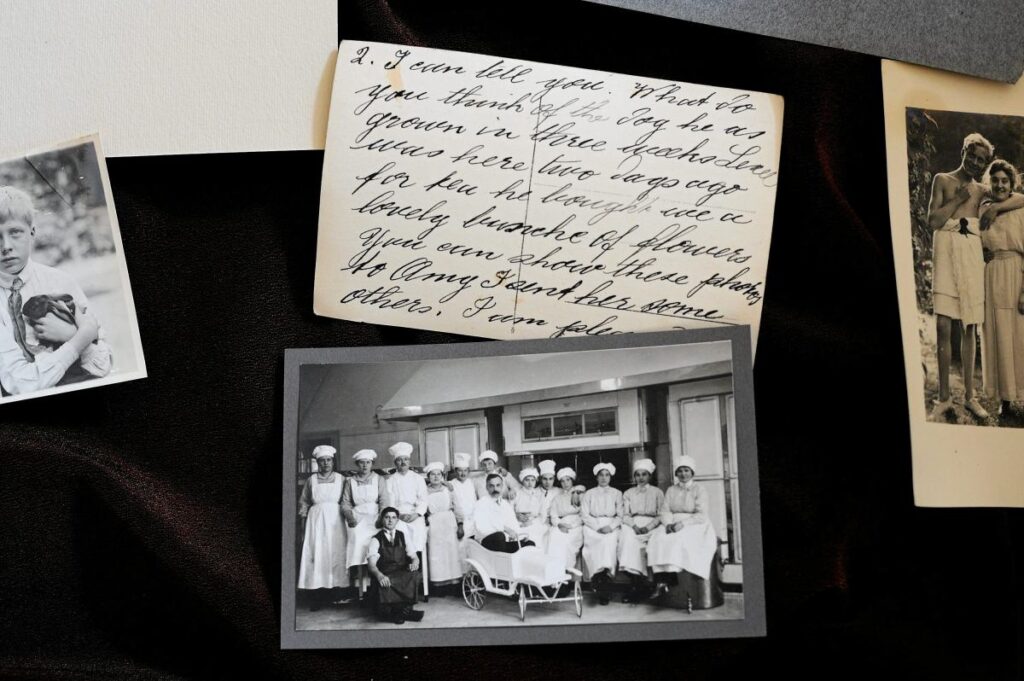 2. I can tell you. What do
you think of the dog he as
grown in three weeks Lexel
was here two days ago
for tea he bought me a
lovely bunche of flowers
You can show these photos
to Amy I sent her some
others. I am